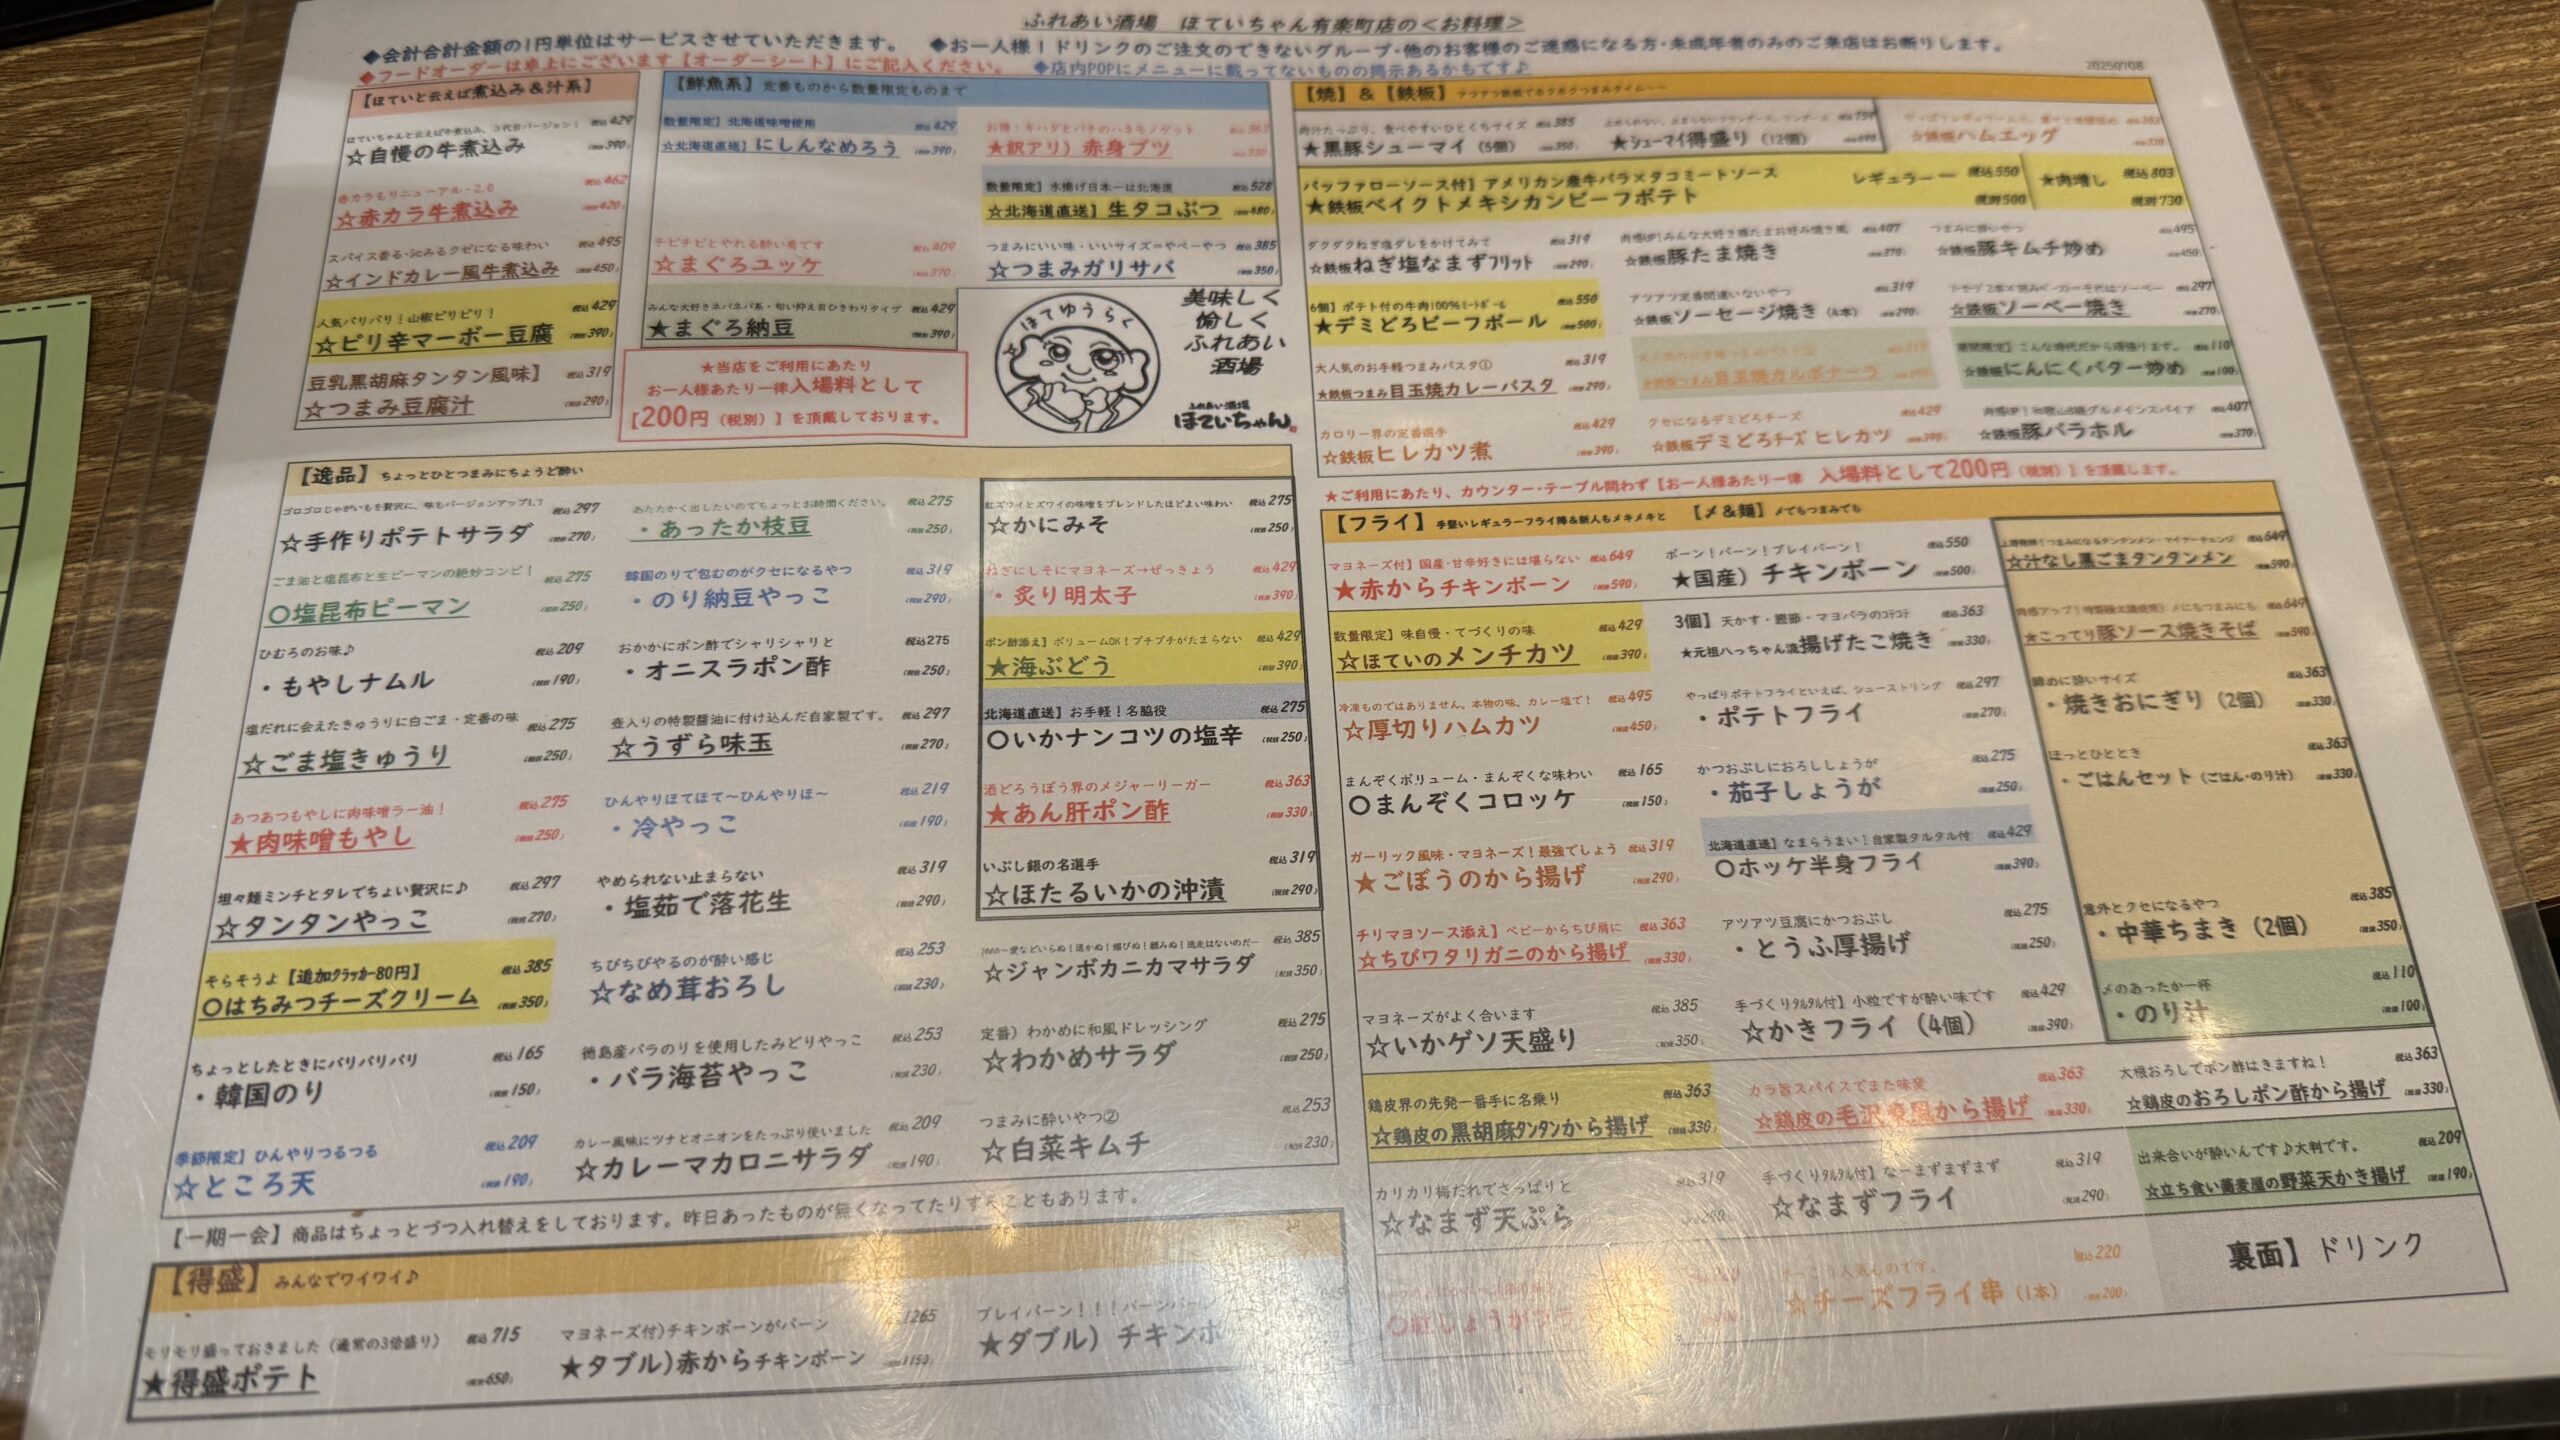 ふれあい酒場 ほていちゃん有楽町店の＜お料理＞
◆会計合計金額の1円単位はサービスさせていただきます。 ◆お一人様！ドリンクのご注文のできないグループ・他のお客様のご迷惑になる方・未成年者のみのご来店はお断りします。
◆フードオーダーは卓上にございます【オーダーシート】にご記入ください。 ◆店内POPにメニューに載ってないものの掲示あるかもです♪
20250708
【ほていと云えば煮込み＆汁系】
ほていちゃんと云えば牛煮込み、3代目バージョン！ 税込429
☆自慢の牛煮込み (税抜390)
赤カラもリニューアル・2.0 税込462
☆赤カラ牛煮込み (税抜420)
スパイス香る・沁みるクセになる味わい 税込495
☆インドカレー風牛煮込み (税抜450)
人気バリバリ！山椒ピリピリ！ 税込429
☆ピリ辛マーボー豆腐 (税抜390)
豆乳黒胡麻タンタン風味】 税込319
☆つまみ豆腐汁 (税抜290)
【鮮魚系】定番ものから数量限定ものまで
数量限定】北海道味噌使用 税込429
☆北海道直送】にしんなめろう (税抜390)
お得：キハダとバチのハネモノゲット 税込363
★訳アリ）赤身ブツ (税抜330)
数量限定】水揚げ日本一は北海道 税込528
☆北海道直送】生タコぶつ (税抜480)
チビチビとやれる酔い肴です 税込409
☆まぐろユッケ (税抜370)
つまみにいい味・いいサイズ＝やべーやつ 税込385
☆つまみガリサバ (税抜350)
みんな大好きネバネバ系・匂い抑え目ひきわりタイプ 税込429
★まぐろ納豆 (税抜390)
★当店をご利用にあたり
お一人様あたり一律入場料として
【200円（税別）】を頂戴しております。
ほてゆうらく
美味しく
愉しく
ふれあい
酒場
ふれあい酒場
ほていちゃん
【焼】＆【鉄板】アツアツ鉄板でホクホクつまみタイム
肉汁たっぷり、食べやすいひとくちサイズ 税込385
★黒豚シューマイ（5個） (税抜350)
税込759
★シューマイ得盛り（12個） (税抜690)
税込363
☆鉄板ハムエッグ (税抜330)
バッファローソース付】アメリカン産牛バラ×タコミートソース レギュラー 税込550 ★肉増し 税込803
★鉄板ベイクトメキシカンビーフポテト 税別500 税別730
ダクダクねぎ塩ダレをかけてみて 税込319
☆鉄板ねぎ塩なまずフリット (税抜290)
肉感UP！みんな大好き豚たまお好み焼き風 税込407
☆鉄板豚たま焼き (税抜370)
つまみに酔いやつ 税込495
☆鉄板豚キムチ炒め (税抜450)
6個】ポテト付の牛肉100%ミートボール 税込550
★デミどろビーフボール (税抜500)
アツアツ定番間違いないやつ 税込319
☆鉄板ソーセージ焼き（4本） (税抜290)
税込297
☆鉄板ソーベー焼き (税抜270)
大人気のお手軽つまみパスタ① 税込319
★鉄板つまみ目玉焼カレーパスタ (税抜290)
大人気のお手軽つまみパスタ② 税込319
★鉄板つまみ目玉焼カルボナーラ (税抜290)
期間限定】こんな時代だから頑張ります。 税込110
☆鉄板にんにくバター炒め (税抜100)
カロリー界の定番選手 税込429
☆鉄板ヒレカツ煮 (税抜390)
クセになるデミどろチーズ 税込429
☆鉄板デミどろチーズヒレカツ (税抜390)
肉感UP！和歌山B級グルメインスパイア 税込407
☆鉄板豚バラホル (税抜370)
★ご利用にあたり、カウンター・テーブル問わず【お一人様あたり一律 入場料として200円（税別）】を頂戴します。
【逸品】ちょっとひとつまみにちょうど酔い
ゴロゴロじゃがいもを贅沢に、味もバージョンアップ1.7 税込297
☆手作りポテトサラダ (税抜270)
あたたかく出したいのでちょっとお時間ください。 税込275
・あったか枝豆 (税抜250)
紅ズワイとズワイの味噌をブレンドしたほどよい味わい 税込275
☆かにみそ (税抜250)
ごま油と塩昆布と生ピーマンの絶妙コンビ！ 税込275
〇塩昆布ピーマン (税抜250)
韓国のりで包むのがクセになるやつ 税込319
・のり納豆やっこ (税抜290)
ねぎにしそにマヨネーズ→ぜっきょう 税込429
・炙り明太子 (税抜390)
ひむろのお味♪ 税込209
・もやしナムル (税抜190)
おかかにポン酢でシャリシャリと 税込275
・オニスラポン酢 (税抜250)
ポン酢添え】ボリュームOK！プチプチがたまらない 税込429
★海ぶどう (税抜390)
塩だれに会えたきゅうりに白ごま・定番の味 税込275
☆ごま塩きゅうり (税抜250)
壺入りの特製醤油に付け込んだ自家製です。 税込297
☆うずら味玉 (税抜270)
北海道直送】お手軽！名脇役 税込275
〇いかナンコツの塩辛 (税抜250)
あつあつもやしに肉味噌ラー油！ 税込275
★肉味噌もやし (税抜250)
ひんやりほてほて～ひんやりほ～ 税込219
・冷やっこ (税抜190)
酒どろうぼう界のメジャーリーガー 税込363
★あん肝ポン酢 (税抜330)
坦々麺ミンチとタレでちょい贅沢に♪ 税込297
☆タンタンやっこ (税抜270)
やめられない止まらない 税込319
・塩茹で落花生 (税抜290)
いぶし銀の名選手 税込319
☆ほたるいかの沖漬 (税抜290)
そらそうよ【追加クラッカー80円】 税込385
〇はちみつチーズクリーム (税抜350)
ちびちびやるのが酔い感じ 税込253
☆なめ茸おろし (税抜230)
税込385
☆ジャンボカニカマサラダ (税抜350)
ちょっとしたときにバリバリバリ 税込165
・韓国のり (税抜150)
徳島産バラのりを使用したみどりやっこ 税込253
・バラ海苔やっこ (税抜230)
定番）わかめに和風ドレッシング 税込275
☆わかめサラダ (税抜250)
季節限定】ひんやりつるつる 税込209
☆ところ天 (税抜190)
カレー風味にツナとオニオンをたっぷり使いました 税込209
☆カレーマカロニサラダ (税抜190)
つまみに酔いやつ② 税込253
☆白菜キムチ (税抜230)
【一期一会】商品はちょっとづつ入れ替えをしております。昨日あったものが無くなってたりすることもあります。
【得盛】みんなでワイワイ♪
モリモリ盛っておきました（通常の3倍盛り） 税込715
★得盛ポテト (税抜650)
マヨネーズ付）チキンボーンがバーン 1265
★ダブル）赤からチキンボーン 1150
ブレイバーン！！！バーンバーン
★ダブル）チキンボ
【フライ】手堅いレギュラーフライ陣＆新人もメキメキと 【〆＆麺】〆でもつまみでも
マヨネーズ付】国産・甘辛好きには堪らない 税込649
★赤からチキンボーン (税抜590)
ボーン！バーン！ブレイバーン！ 税込550
★国産）チキンボーン (税抜500)
税込649
☆汁なし黒ごまタンタンメン (税抜590)
数量限定】味自慢・てづくりの味 税込429
☆ほていのメンチカツ (税抜390)
3個】天かす・鰹節・マヨバラのコテコテ 税込363
★元祖ハっちゃん流揚げたこ焼き (税抜330)
税込649
★こってり豚ソース焼きそば (税抜590)
冷凍ものではありません、本物の味、カレー塩で！ 税込495
☆厚切りハムカツ (税抜450)
やっぱりポテトフライといえば、シューストリング 税込297
・ポテトフライ (税抜270)
締めに酔いサイズ 税込363
・焼きおにぎり（2個） (税抜330)
まんぞくボリューム・まんぞくな味わい 税込165
〇まんぞくコロッケ (税抜150)
かつおぶしにおろししょうが 税込275
・茄子しょうが (税抜250)
ほっとひととき 税込363
・ごはんセット（ごはん・のり汁） (税抜330)
ガーリック風味・マヨネーズ！最強でしょう 税込319
★ごぼうのから揚げ (税抜290)
北海道直送】なまらうまい！自家製タルタル付 税込429
〇ホッケ半身フライ (税抜390)
チリマヨソース添え】ベビーからちび肩に 税込363
☆ちびワタリガニのから揚げ (税抜330)
アツアツ豆腐にかつおぶし 税込275
・とうふ厚揚げ (税抜250)
意外とクセになるやつ 税込385
・中華ちまき（2個） (税抜350)
マヨネーズがよく合います 税込385
☆いかゲソ天盛り (税抜350)
手づくりタルタル付】小粒ですが酔い味です 税込429
☆かきフライ（4個） (税抜390)
〆のあったか一杯 税込110
・のり汁 (税抜100)
鶏皮界の先発一番手に名乗り 税込363
☆鶏皮の黒胡麻タンタンから揚げ (税抜330)
カラ旨スパイスでまた味変 税込363
☆鶏皮の毛沢東風から揚げ (税抜330)
大根おろしでポン酢はきますね！ 税込363
☆鶏皮のおろしポン酢から揚げ (税抜330)
カリカリ梅だれでさっぱりと 税込319
☆なまず天ぷら (税抜290)
手づくりタルタル付】なーまずまずまず 税込319
☆なまずフライ (税抜290)
出来合いが酔いんです♪大判です。 税込209
☆立ち食い蕎麦屋の野菜天かき揚げ (税抜190)
〇紅しょうがフラ
けっこう人気ものです。 税込220
☆チーズフライ串（1本） (税抜200)
裏面】ドリンク